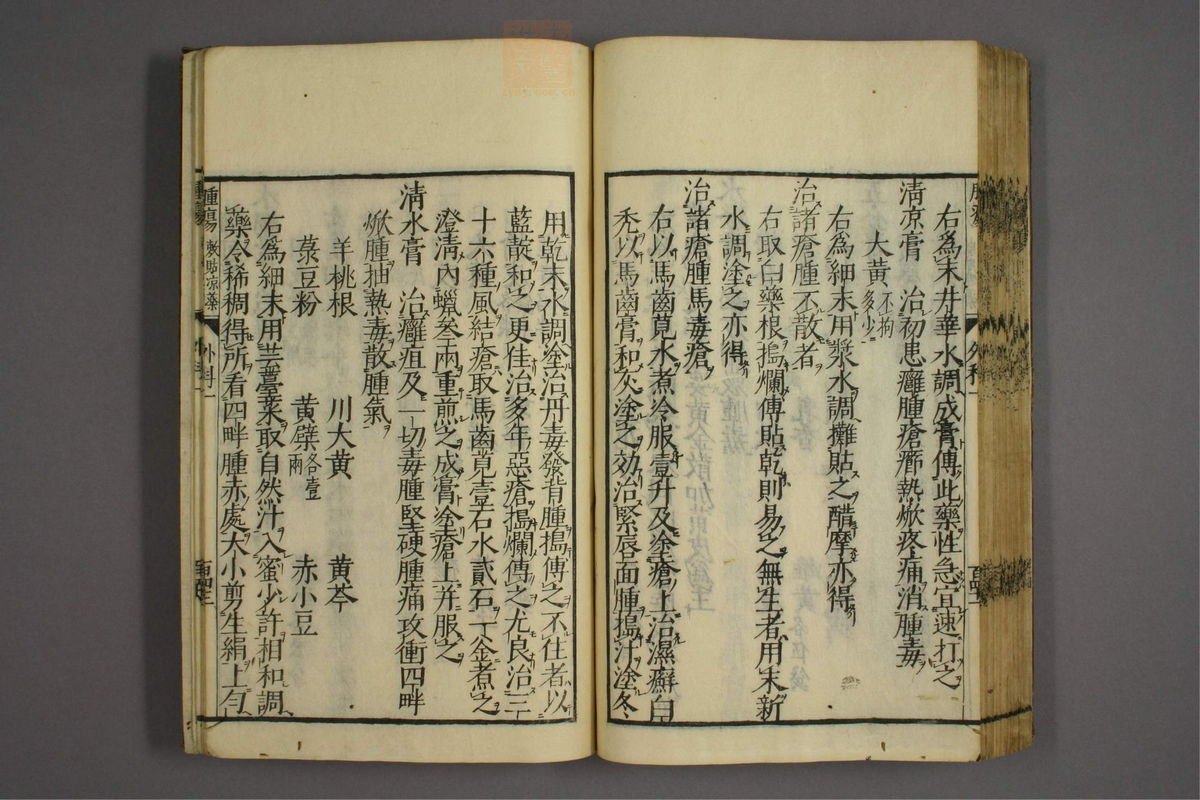 右為末井華水調成膏傅此藥性急宜速打之
淸凉膏 治初患癰腫瘡癤熱焮疼痛消腫毒
大黃不拘多少
右為細末用漿水調攤貼之醋摩亦得
治諸瘡腫不散者
右取白藥根搗爛傅貼乾則易之無生者用末新
水調塗之亦得
治諸瘡腫馬毒瘡
右以馬齒莧水煮冷服壹升及塗瘡上治濕癬白
禿以馬齒膏和灰塗之効治緊唇面腫搗汁塗冬
用乾末水調塗治丹毒發背腫搗傅之不住者以
藍靛和之更佳治多年惡瘡搗爛傅之尤良治三
十六種風結瘡取馬齒莧壹石水貳石下金煮之
澄淸內蠟叁兩重煎之成膏塗瘡上并服之
淸水膏 治癰疽及一切毒腫堅硬腫痛攻衝四畔
焮腫抽熱毒散腫氣
羊桃根 川大黃 黃芩
菉豆粉 黃蘗各壹兩 赤小豆
右為細末用芸薹菜取自然汁入蜜少許相和調
藥令稀稠得所看四畔腫赤處大小剪生絹上勻
腫瘍 敷貼凉藥 外科一